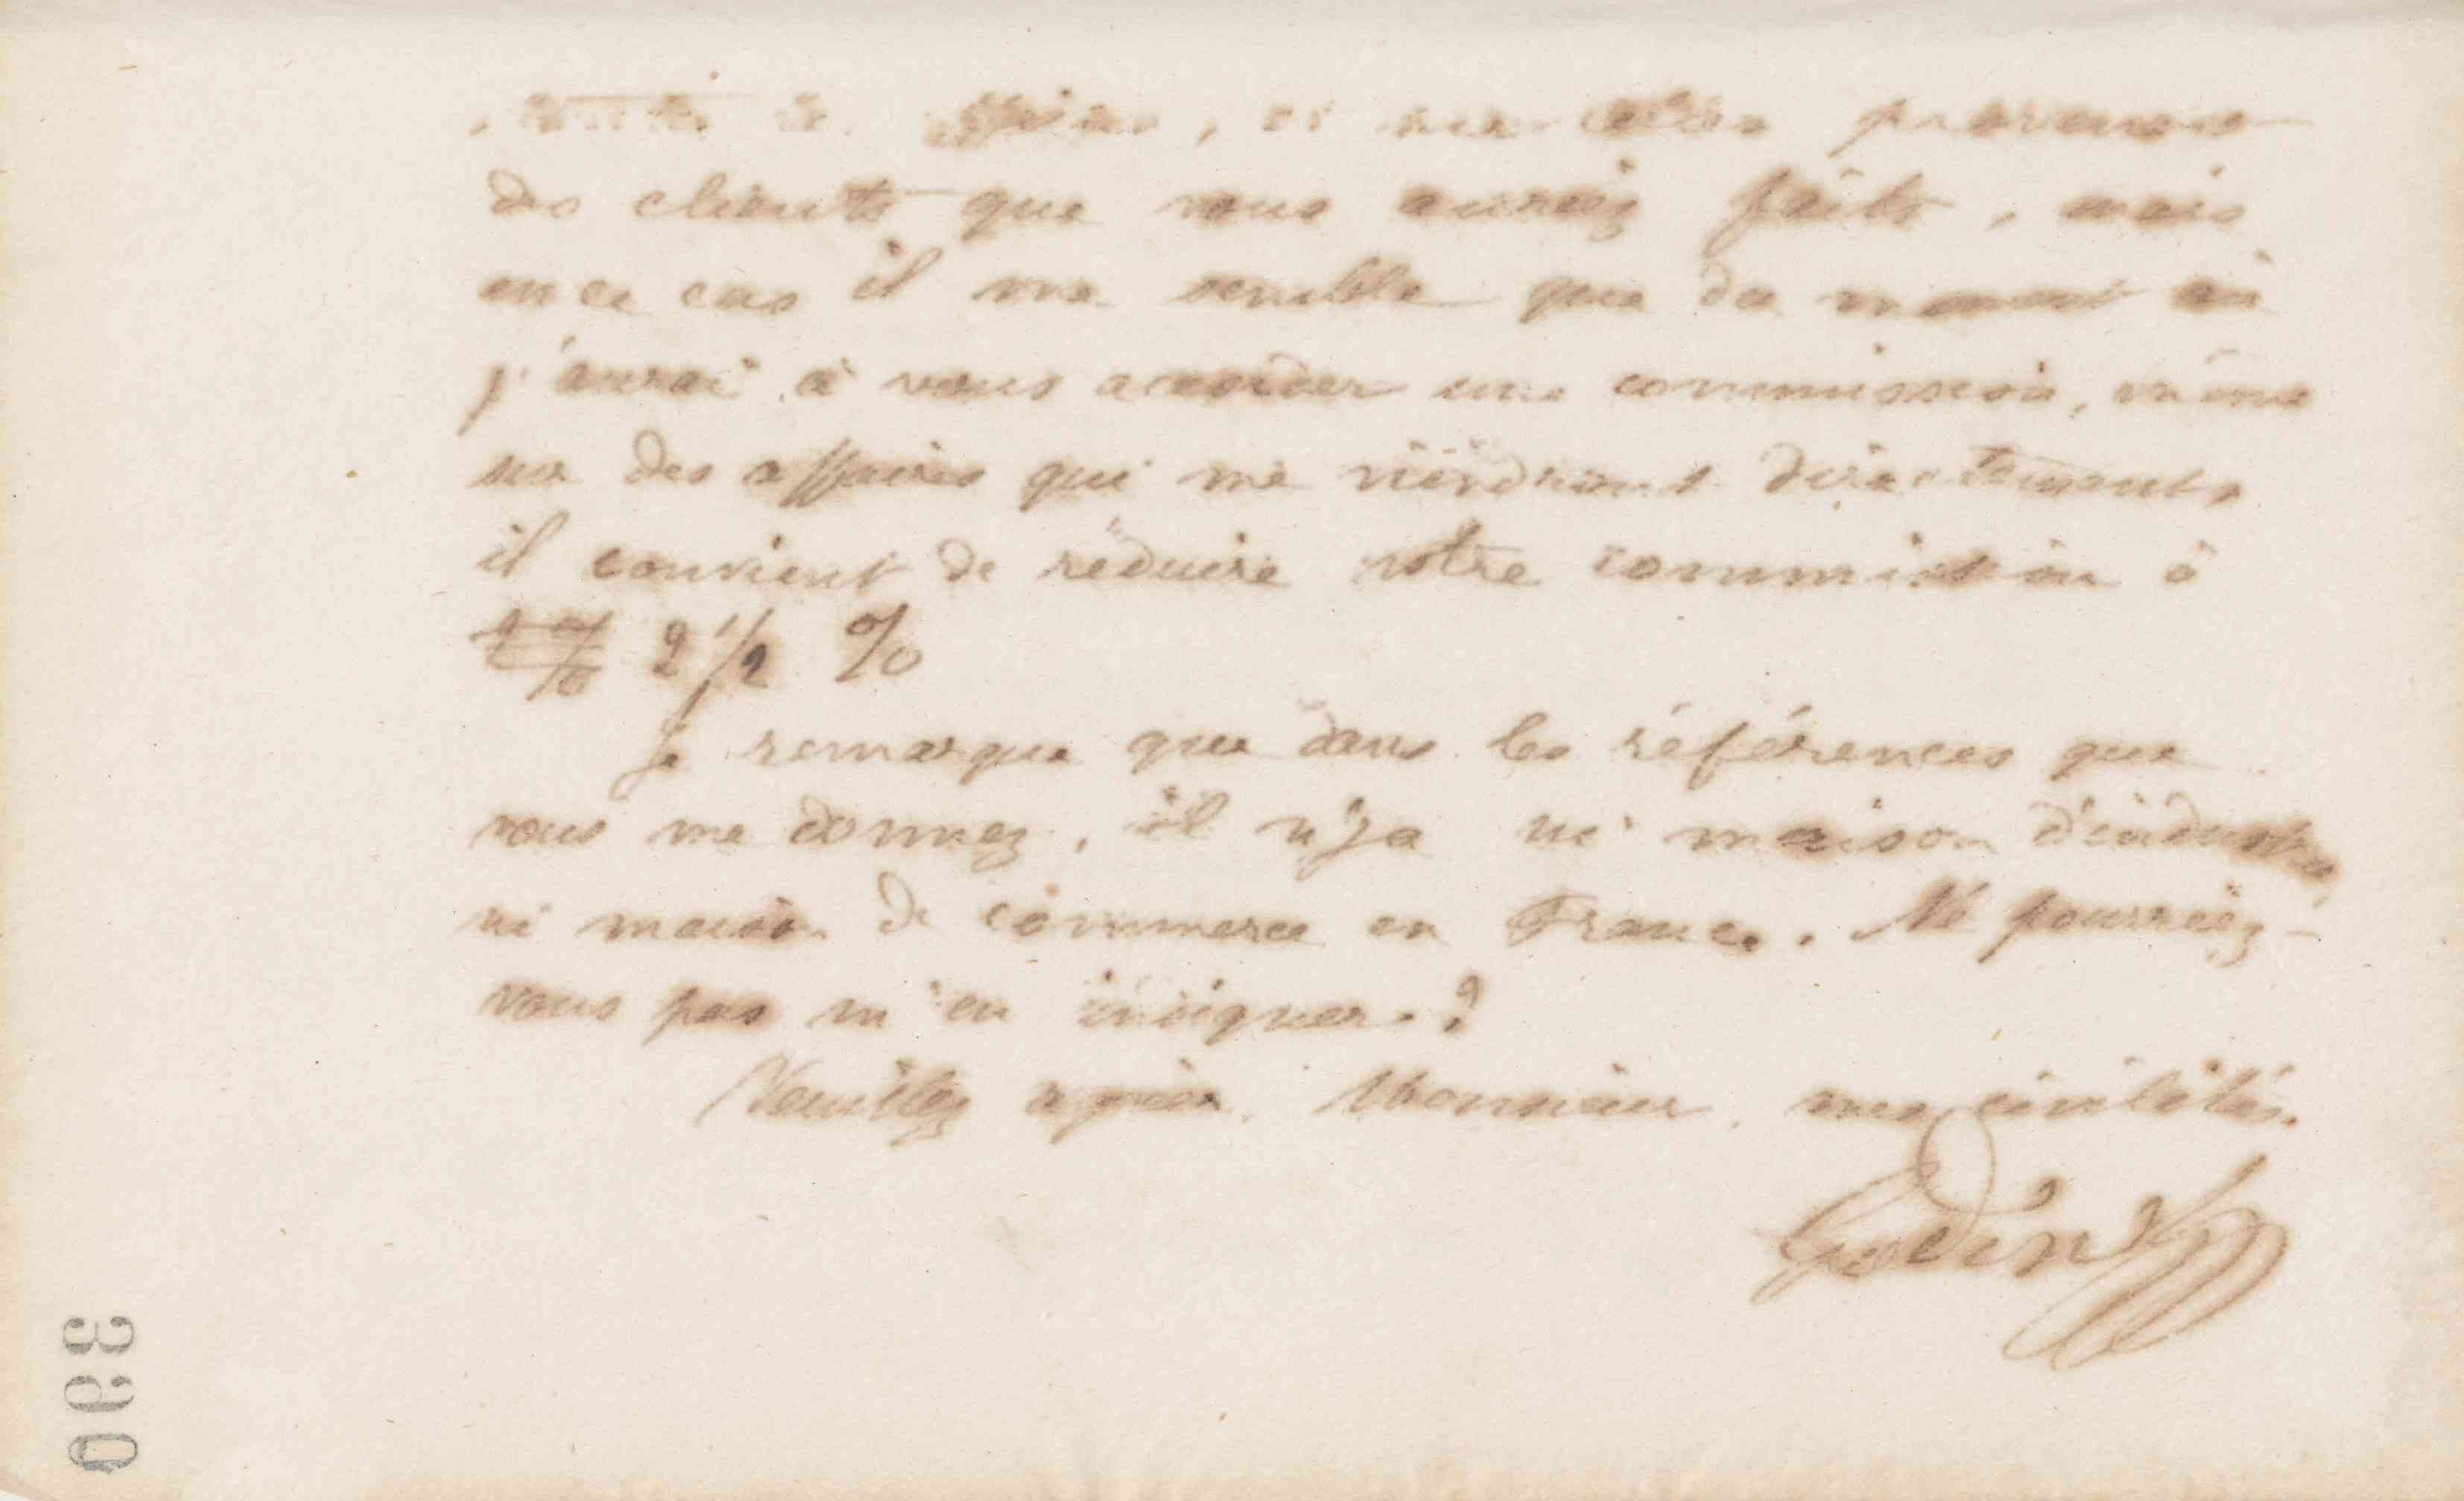 des clients que vous auriez faits, mais
en ce cas il me semble que du moment où
j'aurai à vous accorder une commission, même
sur des affaires qui me viendront directement,
il convient de réduire votre commission à
2 1/2 %
Je remarque que dans les références que
vous me donnez, il n'y a ni maison d'industrie,
ni maison de commerce en France. Ne pourriez-
vous pas m'en indiquer ?
Veuillez agréer, Monsieur, mes civilités.
Godin
390